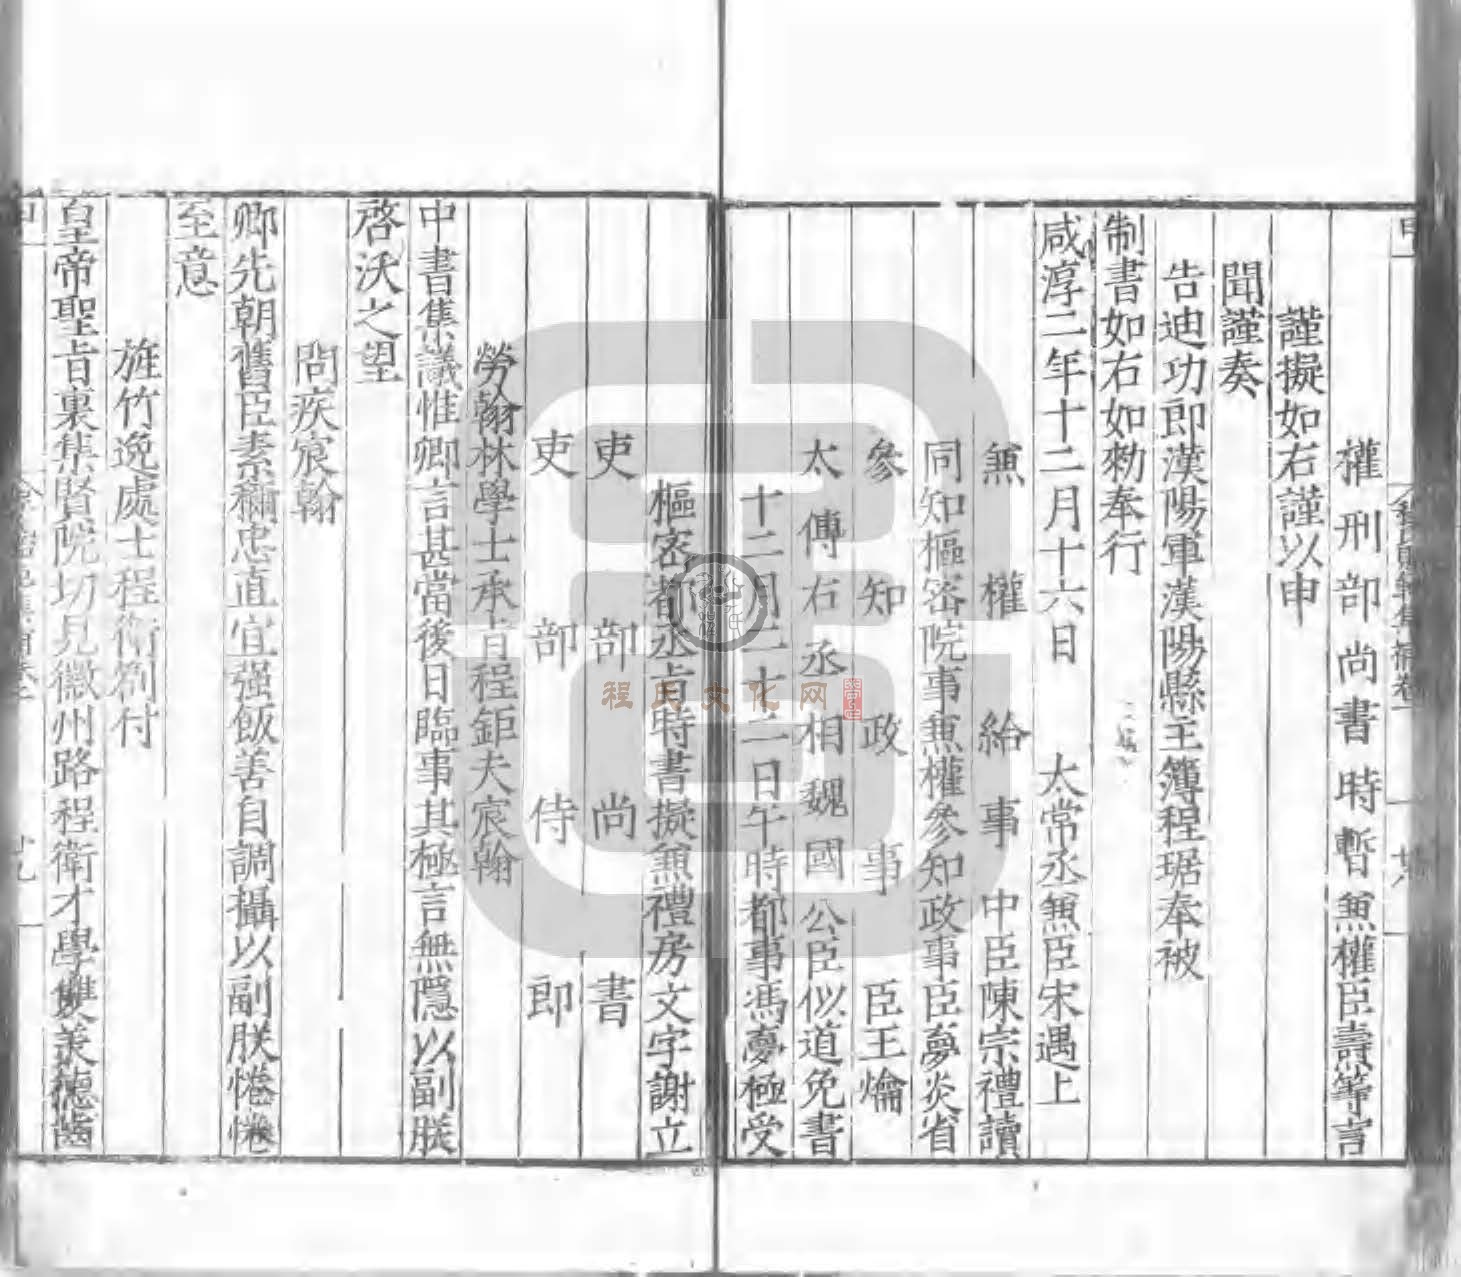 權刑部尚書時暫𠔥權臣壽等言
謹擬如右謹以申
聞謹奏
告迪功郎漢陽軍漢陽縣主簿程琚奉被
制書如右如勑奉行
咸淳二年十二月十六日　太常丞𠔥臣宋遇上
𠔥權給事中臣陳宗禮讀
同知樞密院事𠔥權參知政事臣夢炎省
參知政事臣王爚
太傅右丞相魏國公臣似道免書
十二月二十二日午時都事馮夢極受
樞密都丞㫖時書擬𠔥禮房文字謝立
吏部尚書
吏部侍郎
勞翰林學士承㫖程鉅夫宸翰
中書集議惟卿言甚當後日臨事其極言無隱以副朕
啓沃之望
問疾宸翰
卿先朝舊臣素稱忠直宜强飯善自調攝以副朕惓惓
至意
旌竹逸處士程衛劄付
皇帝聖㫖裏集賢院切見徽州路程衛才學雙美德齒
程氏文化网